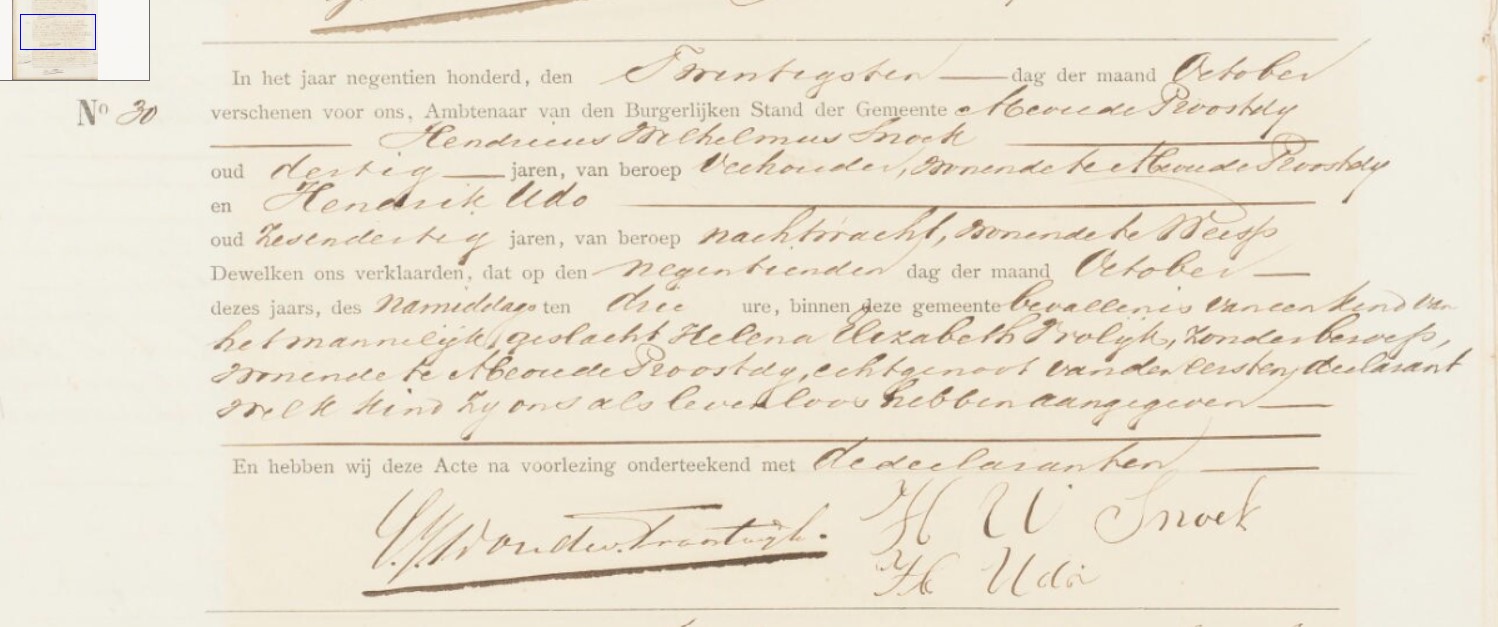 In het jaar negentien honderd, den Twintigsten — dag der maand October
No 30 verschenen voor ons, Ambtenaar van den Burgerlijken Stand der Gemeente Abcoude Proostdy
Hendricus Wilhelmus Snoek
oud dertig — jaren, van beroep Veehouder, wonende te Abcoude Proostdy
en Hendrik Udo
oud Zesendertig jaren, van beroep nachtwacht, wonende te Weesp
Dewelken ons verklaarden, dat op den negentienden dag der maand October —
dezes jaars, des Namiddags ten drie ure, binnen deze gemeente bevallen is van een kind van
het mannelijk geslacht Helena Elizabeth Vrolijk, zonder beroep,
wonende te Abcoude Proostdy, echtgenoot van den eersten declarant
welk kind zy ons als levenloos hebben aangegeven —
En hebben wij deze Acte na voorlezing onderteekend met de declaranten —
H W Snoek
H Udo